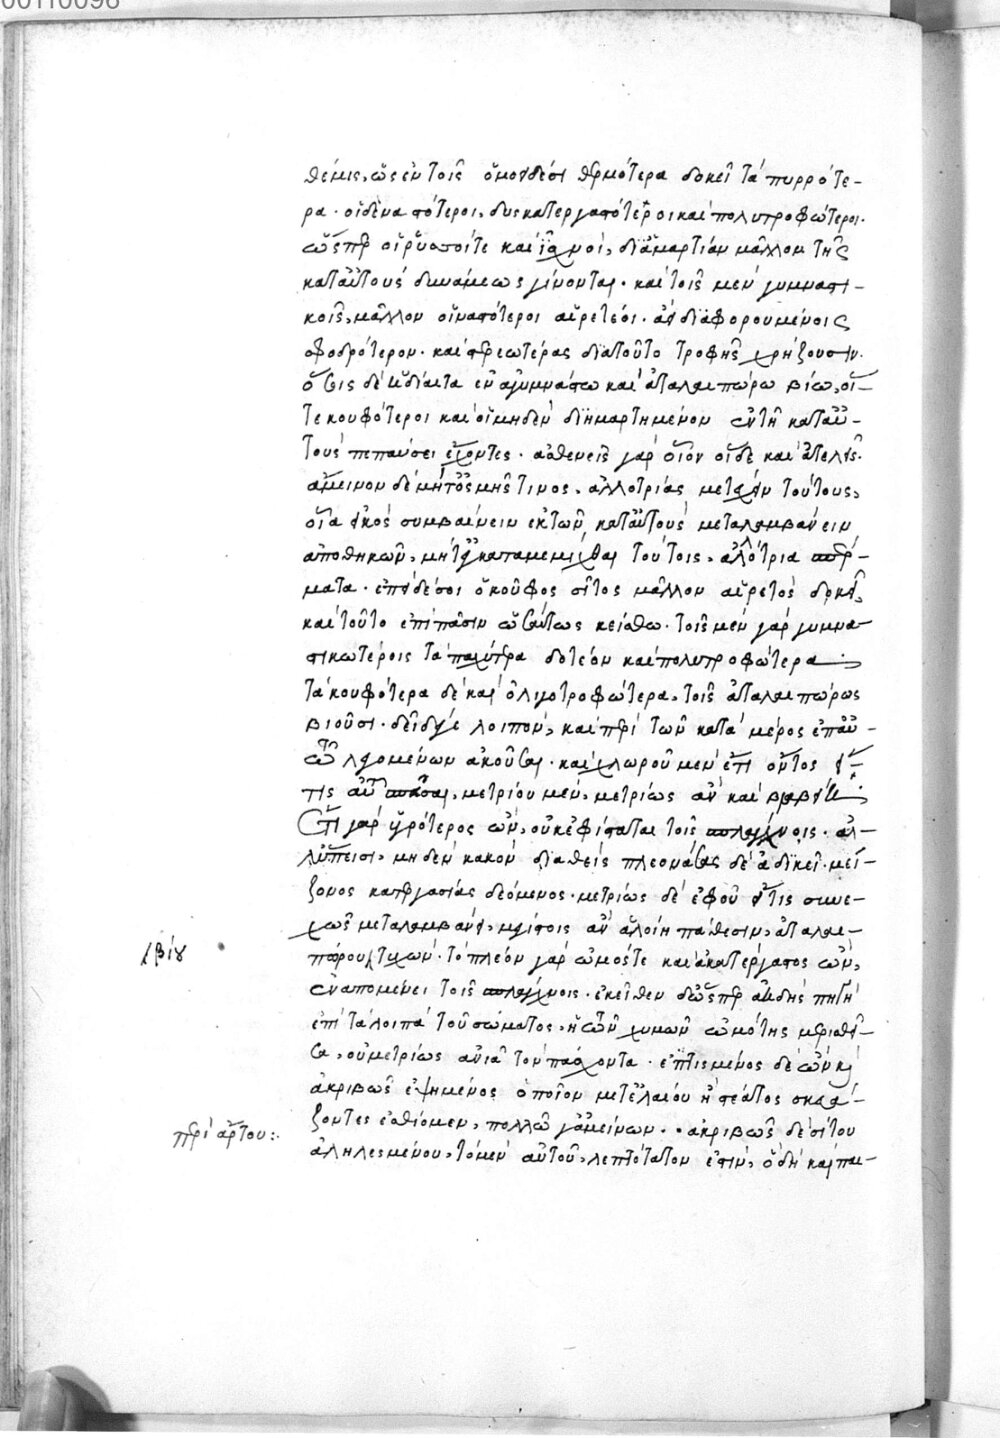 00110098
θέμις, ὡς ἐν τοῖς ὁμοειδέσι θερμότερα δοκεῖ τὰ πυρρότε-
ρα· οἱ δὲ νασ τότεροι, δυσκατεργαστότεροι καὶ πολυτροφώτεροι.
ὥσπερ οἱ ῥυσοί τε καὶ ἰσχνοὶ, δι' ἁμαρτίαν μᾶλλον τῆς
κατ' αὐτοὺς δυνάμεως γίνονται· καὶ τοῖς μὲν γυμνασι-
κοῖς, μᾶλλον οἱ ναστότεροι αἱρετέοι· ἅτε διαφορουμένοις
σφοδρότερον· καὶ στερεωτέρας διὰ τοῦτο τροφῆς χρῄζουσιν.
οἷς δὲ ἡ δίαιτα ἐν ἀγυμνάστω καὶ ἀταλαιπώρω βίω, οἵ-
τε κουφότεροι καὶ οἱ μηδὲν διημαρτημένον ἐν τῆ κατ' αὐ-
τοὺς πεπάνσει ἔχοντες· ἀσθενεῖς γὰρ οἷον οἵδε καὶ ἀτελεῖς·
ἄμεινον δὲ μήτ' ὀσμῆς τινος, ἀλλοτρίας μετέχειν τούτους,
οἷα εἰκὸς συμβαίνειν ἐκ τῶν κατ' αὐτοὺς μεταλαμβάνειν
ἀποθηκῶν, μήτε καταμεμίχθαι τούτοις, ἀλλότρια σπέρ-
ματα· ἐπεὶ δέ σοι ὁ κοῦφος σῖτος μᾶλλον αἱρετὸς δοκεῖ,
καὶ τοῦτο ἐπὶ πᾶσιν ὡσαύτως κείσθω· τοῖς μὲν γὰρ γυμνα-
στικωτέροις τὰ παχύτερα δοτέον καὶ πολυτροφώτερα
τὰ κουφότερα δὲ καὶ ὀλιγοτροφώτερα, τοῖς ἀταλαιπώρως
βιοῦσι· δεῖ δέ γε λοιπὸν, καὶ περὶ τῶν κατὰ μέρος ἐπ' αὐ-
τῶ λεγομένων ἀκοῦσαι· καὶ χλωροῦ μὲν ἔτι ὄντος εἴ-
τις αὐτοῦ, μετρίου μὲν, μετρίως ἂν καὶ
ἔτι γὰρ ὑγρότερος ὢν, οὐκ ἐφίσταται τοῖς σπλάγχνοις· ἀλ-
λ' ὕπεισι, μηδὲν κακὸν διαθεὶς πλεονάσας δὲ ἀδικεῖ· μεί-
ζονος κατεργασίας δεόμενος· μετρίως δὲ ἐφ' οὗ εἴ τις συνε-
χῶς μεταλαμβάνει, μοίποις ἂν ἁλοίη πάθεσιν, ἀταλαι-
πώρου τυχών· τὸ πλέον γὰρ ὠμός τε καὶ ἀκατέργαστος ὢν,
ἐναπομένει τοῖς σπλάγχνοις· ἐκεῖθεν δὲ ὥσπερ πηγὴ
ἐπὶ τὰ λοιπὰ τοῦ σώματος, ἡ τῶν χυμῶν ὠμότης μερισθεῖ-
σα, οὐ μετρίως ἀνιᾶ τὸν πάσχοντα· ἐπτισμένος δὲ ὢν καὶ
ἀκριβῶς ἑψημένος ὁποῖον μετ' ἐλαίου ἢ στέατος σκευά-
ζοντες ἐσθίομεν, πολλῶ γ' ἀμείνων·· ἀκριβῶς δὲ σίτου
ἀληλεσμένου, τὸ μὲν αὐτοῦ, λεπτότατον ἐστὶν, ὃ δὴ καὶ παι-
βίου
περὶ ἄρτου: